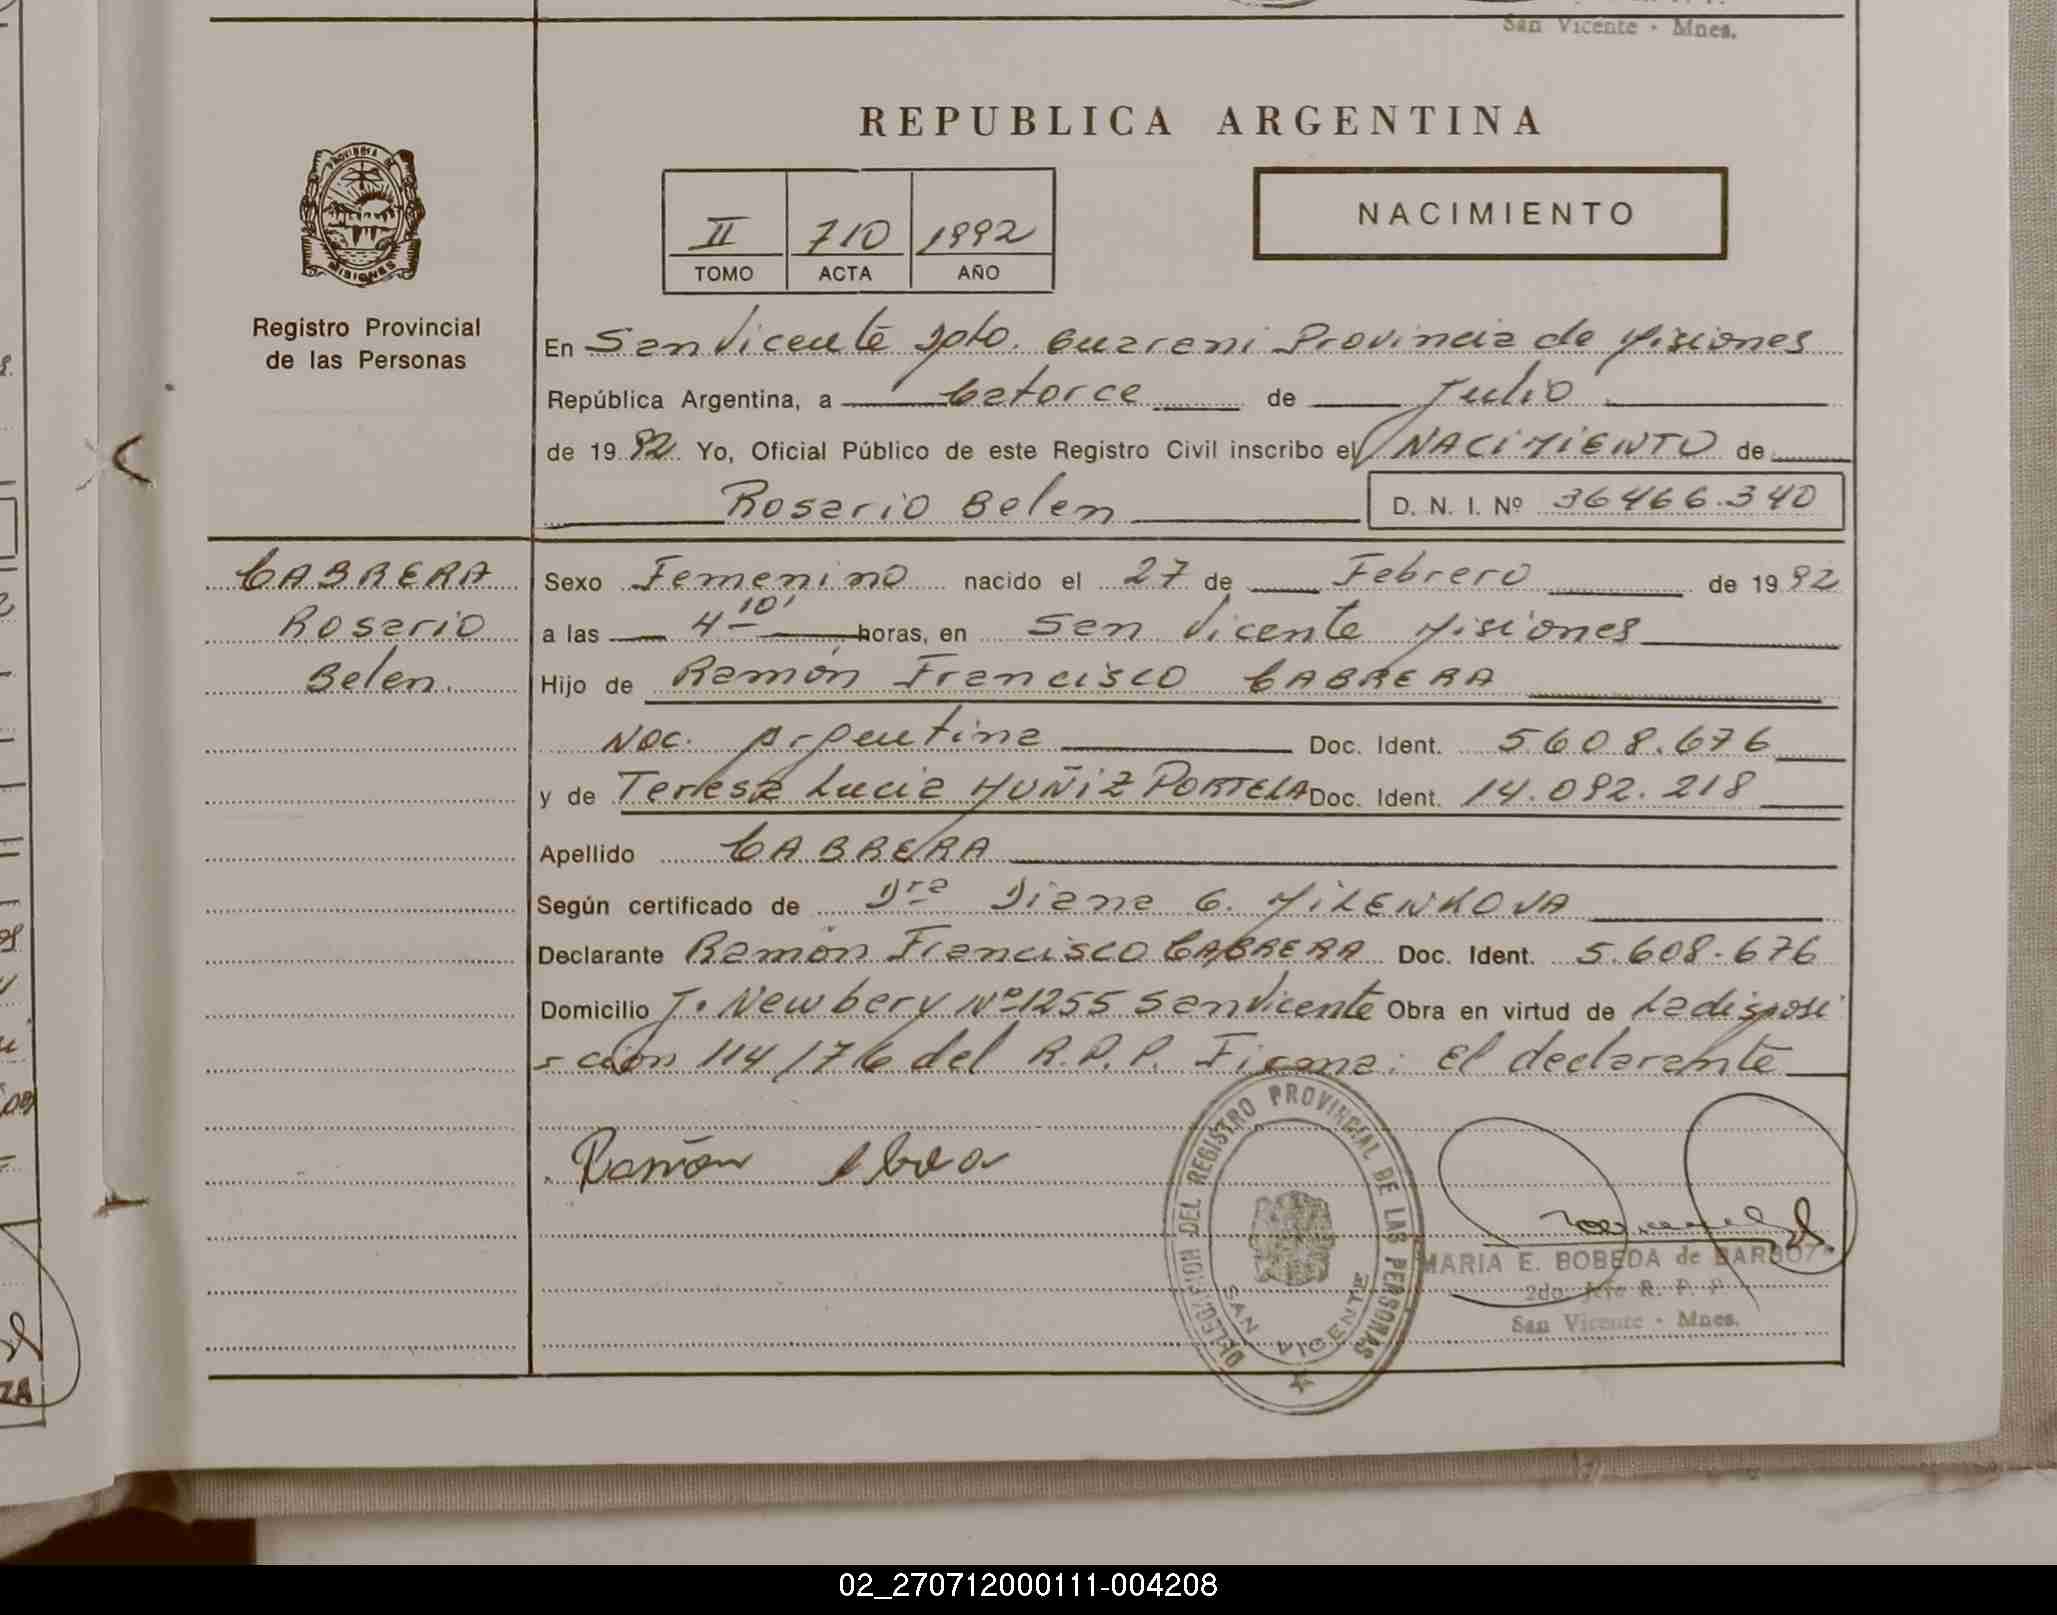 San Vicente - Mnes.
REPUBLICA ARGENTINA
PROVINCIA DE
MISIONES
II 710 1992
TOMO ACTA AÑO
NACIMIENTO
Registro Provincial
de las Personas
En San Vicente Dpto. Guarani Provincia de Misiones
República Argentina, a Catorce de Julio
de 1992 Yo, Oficial Público de este Registro Civil inscribo el NACIMIENTO de
Rosario Belen D. N. I. Nº 36466.340
CABRERA
Rosario
Belen.
Sexo Femenino nacido el 27 de Febrero de 1992
a las 4 10' horas, en San Vicente Misiones
Hijo de Ramón Francisco CABRERA
Nac. Argentina Doc. Ident. 5608.676
y de Teresa Lucia MUÑIZ PORTELA Doc. Ident. 14.092.218
Apellido CABRERA
Según certificado de Dra Diana G. MILENKOVA
Declarante Ramón Francisco CABRERA Doc. Ident. 5.608.676
Domicilio J. Newbery Nº 1255 San Vicente Obra en virtud de La disposi
- ción 114/76 del R.P.P. Firma: El declarante
Ramón
DELEGACION DEL REGISTRO PROVINCIAL DE LAS PERSONAS
SAN VICENTE
MARIA E. BOBEDA de
2do. Jefe R. P. P.
San Vicente - Mnes.
02_270712000111-004208